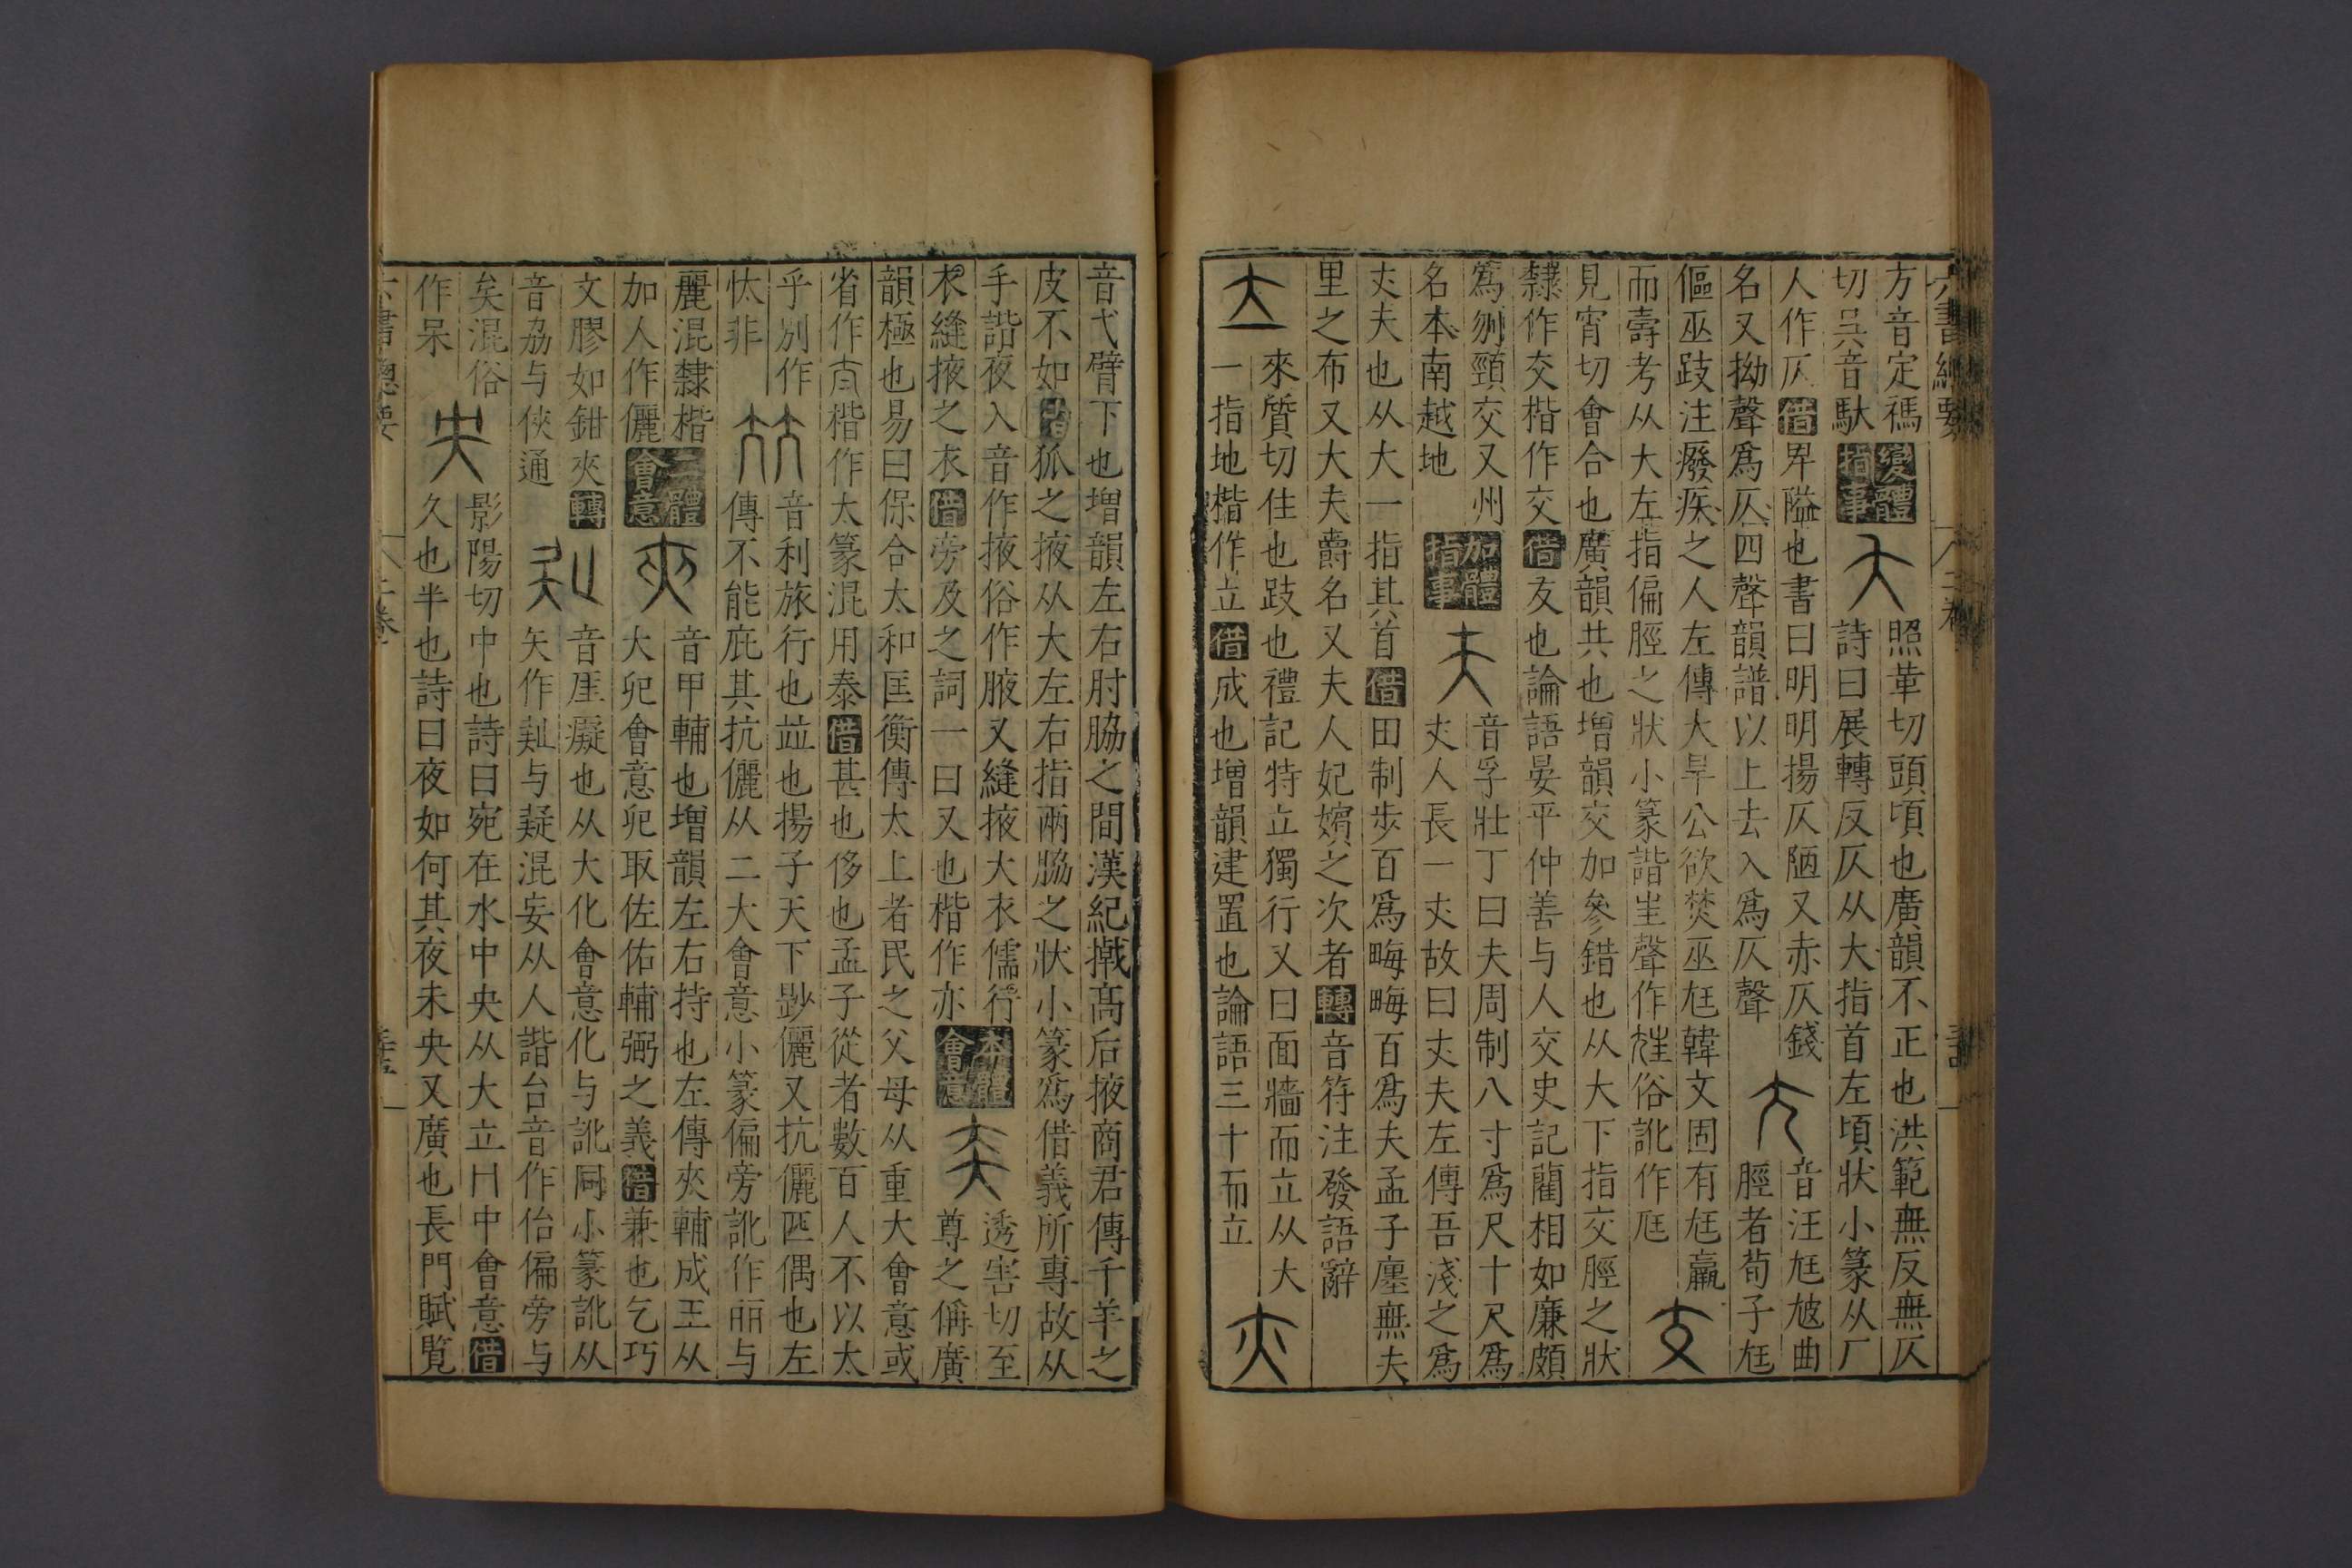 六書總要
方音定禡變體照葦切頭頃也廣韻不正也洪範無反無仄
切㕦音馱指事詩曰展轉反仄从大指首左頃狀小篆从厂
人作仄借𤰞隘也書曰明明揚仄陋又赤仄錢
音汪尪尳曲
名又拗聲爲仄四聲韻譜以上去入爲仄聲
脛者荀子尪
傴巫跂注癈疾之人左傳大旱公欲焚巫尪韓文固有尪羸
而壽考从大左指偏脛之狀小篆諧㞷聲作尩俗訛作尫
見宵切會合也廣韻共也增韻交加參錯也从大下指交脛之狀
隸作交楷作交借友也論語晏平仲善与人交史記藺相如廉頗
爲刎頸交又州加體音孚壯丁曰夫周制八寸爲尺十尺爲
名本南越地指事丈人長一丈故曰丈夫左傳吾淺之爲
丈夫也从大一指其首借田制步百爲畮畮百爲夫孟子廛無夫
里之布又大夫爵名又夫人妃嬪之次者轉音符注發語辭
來質切住也跂也禮記特立獨行又曰面牆而立从大
一指地楷作立借成也增韻建置也論語三十而立
音弋臂下也增韻左右肘脇之間漢紀㦸高后掖商君傳千羊之
皮不如借狐之掖从大左右指兩脇之狀小篆爲借義所專故从
手諧夜入音作掖俗作腋又縫掖大衣儒行本體透害切至
衣縫掖之衣借旁及之詞一曰又也楷作亦會意尊之偁廣
韻極也易曰保合太和匡衡傳太上者民之父母从重大會意或
省作夳楷作太篆混用泰借甚也侈也孟子從者數百人不以太
乎別作
忲非
音利旅行也竝也揚子天下尠儷又抗儷匹偶也左
傳不能庇其抗儷从二大會意小篆偏旁訛作丽与
麗混隸楷二體音甲輔也增韻左右持也左傳夾輔成王从
加人作儷會意大𠈌會意𠈌取佐佑輔弼之義借兼也乞巧
文膠如鉗夾轉音厓癡也从大化會意化与訛同小篆訛从
音劦与俠通矢作𠤕与疑混妄从人諧台音作佁偏旁与
矣混俗
作呆
影陽切中也詩曰宛在水中央从大立冂中會意借
久也半也詩曰夜如何其夜未央又廣也長門賦覽
六書總要